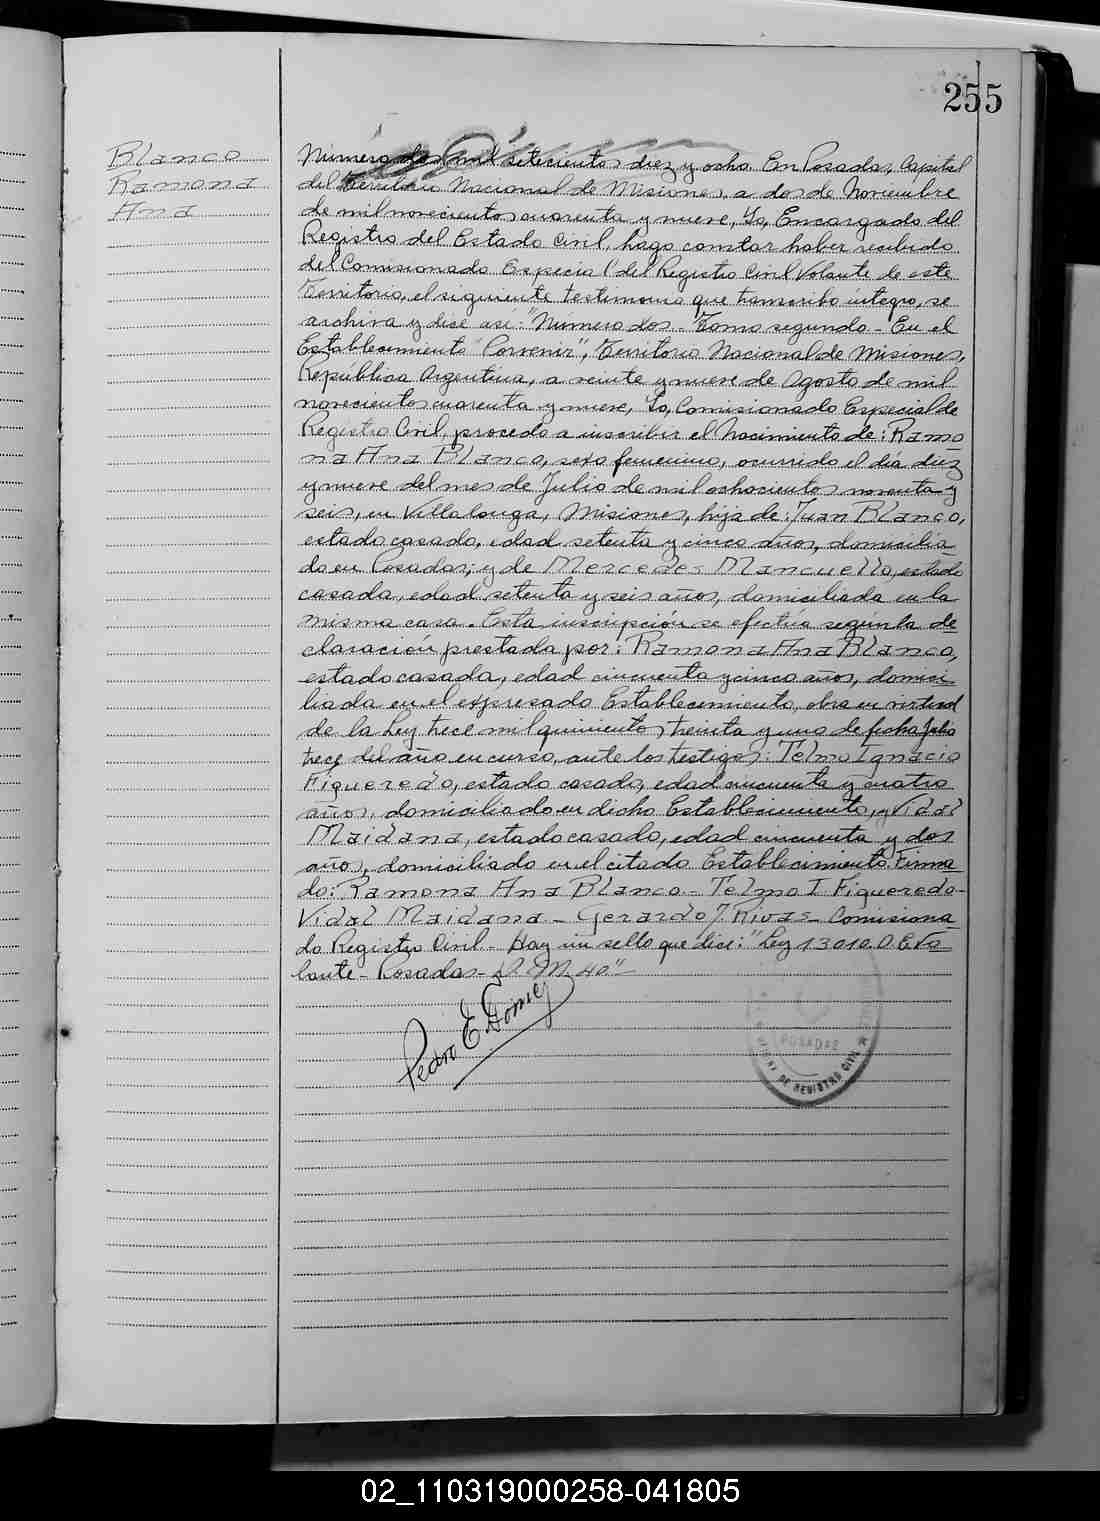 255
Blanco
Ramona
Ana
Número dos mil setecientos diez y ocho. En Posadas, Capital
del Territorio Nacional de Misiones, a dos de Noviembre
de mil novecientos cuarenta y nueve, Yo, Encargado del
Registro del Estado Civil, hago constar haber recibido
del Comisionado Especial del Registro Civil Volante de este
Territorio, el siguiente testimonio que transcribo íntegro, se
archiva y dice así: "Número dos - Tomo segundo - En el
Establecimiento "Porvenir", Territorio Nacional de Misiones,
República Argentina, a veinte y nueve de Agosto de mil
novecientos cuarenta y nueve, Yo, Comisionado Especial de
Registro Civil, procedo a inscribir el Nacimiento de: Ramo
na Ana Blanco, sexo femenino, ocurrido el día diez
y nueve del mes de Julio de mil ochocientos noventa y
seis, en Villalonga, Misiones, hija de: Juan Blanco,
estado casado, edad setenta y cinco años, domicilia
do en Posadas; y de Mercedes Mancuello, estado
casada, edad setenta y seis años, domiciliada en la
misma casa. Esta inscripción se efectúa según la de
claración prestada por: Ramona Ana Blanco,
estado casada, edad cincuenta y cinco años, domici
liada en el expresado Establecimiento, obra en virtud
de la Ley trece mil quinientos treinta y uno de fecha Julio
trece del año en curso, ante los testigos: Telmo Ignacio
Figueredo, estado casado, edad cincuenta y cuatro
años, domiciliado en dicho Establecimiento, y Vidal
Maidana, estado casado, edad cincuenta y dos
años, domiciliado en el citado Establecimiento. Firma
do: Ramona Ana Blanco - Telmo I Figueredo -
Vidal Maidana - Gerardo J. Rivas - Comisiona
do Registro Civil - Hay un sello que dice: "Ley 13010. O. E. Vo
lante - Posadas - D. M. 40" -
Pedro E. Gomez
POSADAS
DE REGISTRO CIVIL
02_110319000258-041805